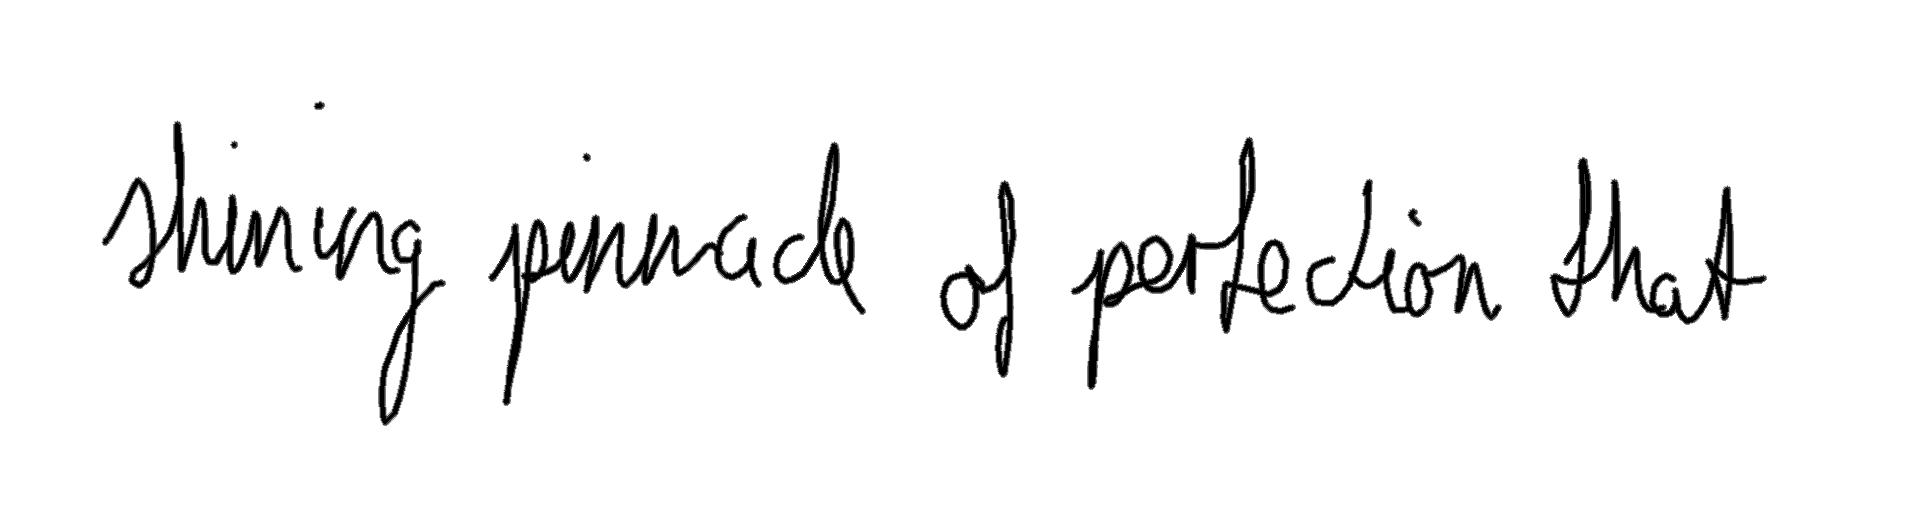 shining pinnacle of perfection that